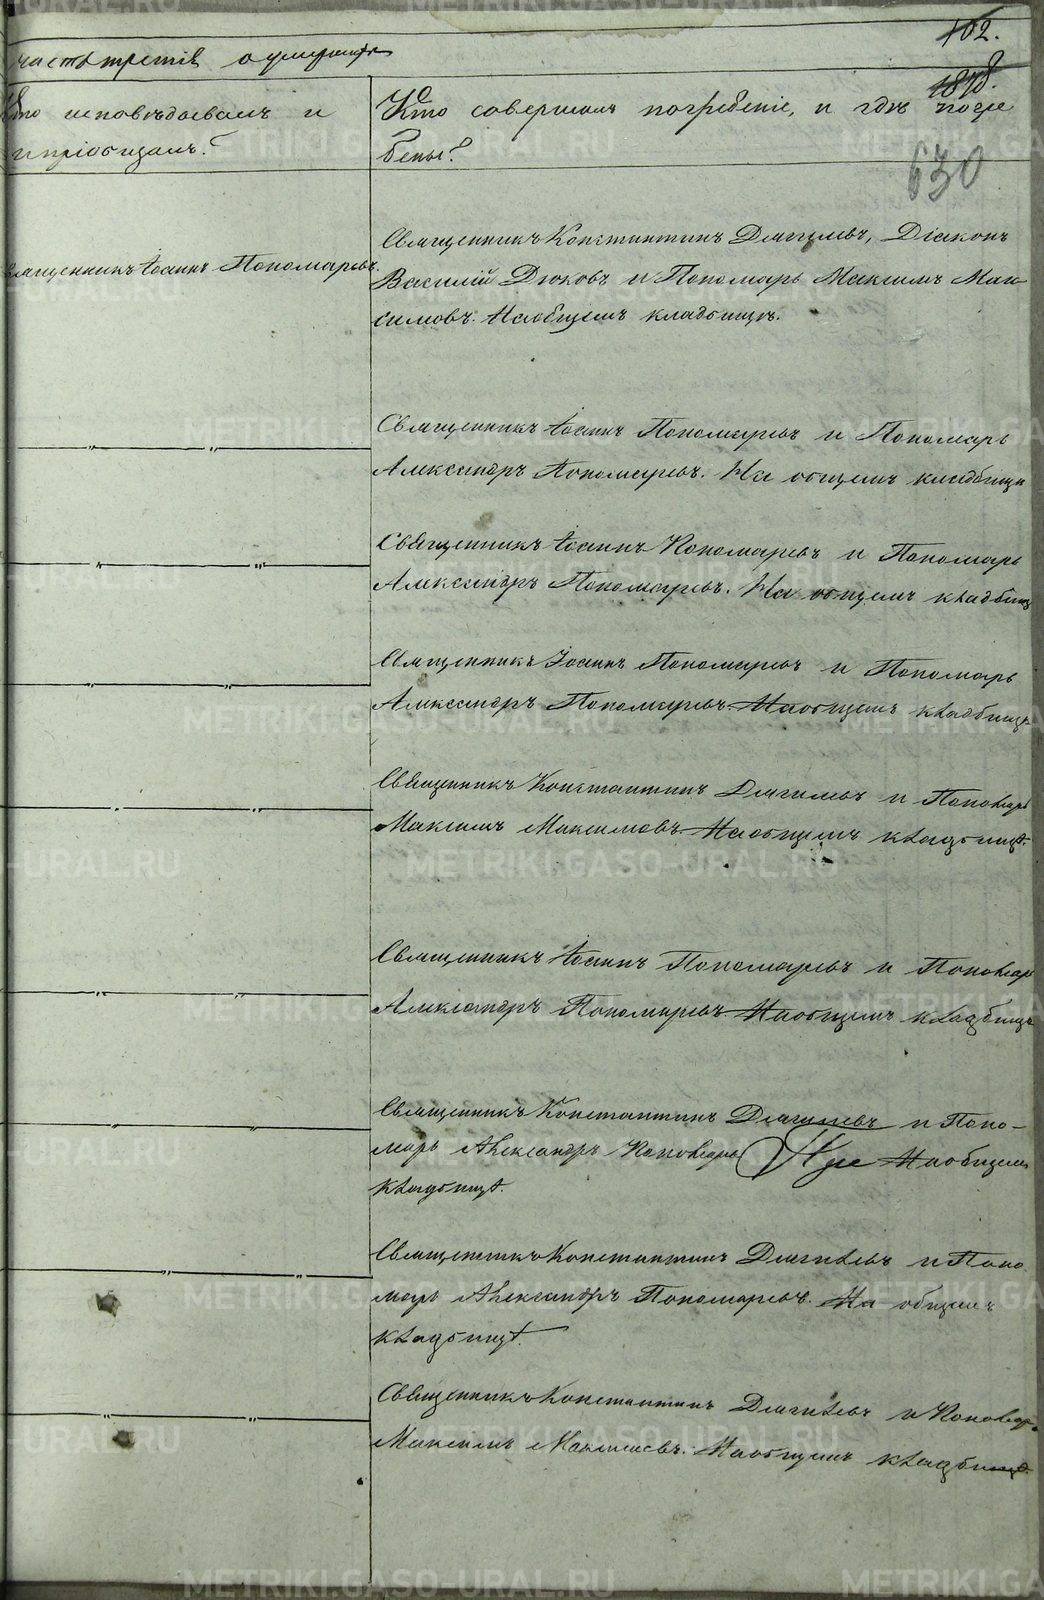 102.
часть третія о умершихъ
1878.
Кто исповѣдовалъ и
и пріобщалъ?
Кто совершалъ погребеніе, и гдѣ погре
бены?
630
Священникъ Константинъ Дягилевъ, Діаконъ
Священникъ Іоаннъ Пономаревъ.
Василій Дюковъ и Пономарь Максимъ Мак
симовъ. На общемъ кладбищѣ.
Священникъ Іоаннъ Пономаревъ и Пономарь
Александръ Пономаревъ. На общемъ кладбищѣ
Священникъ Іоаннъ Пономаревъ и Пономарь
Александръ Пономаревъ. На общемъ кладбищѣ
Священникъ Іоаннъ Пономаревъ и Пономарь
Александръ Пономаревъ. На общемъ кладбищѣ
Священникъ Константинъ Дягилевъ и Пономарь
Максимъ Максимовъ. На общемъ кладбищѣ.
Священникъ Іоаннъ Пономаревъ и Пономарь
Александръ Пономаревъ. На общемъ кладбищѣ
Священникъ Константинъ Дягилевъ и Поно-
марь Александръ Пономарев На общемъ
кладбищѣ.
Священникъ Константинъ Дягилевъ и Поно
марь Александръ Пономаревъ. На общемъ
кладбищѣ.
Священникъ Константинъ Дягилевъ и Пономарь
Максимъ Максимовъ. На общемъ кладбищѣ.
METRIKI.GASO-URAL.RU